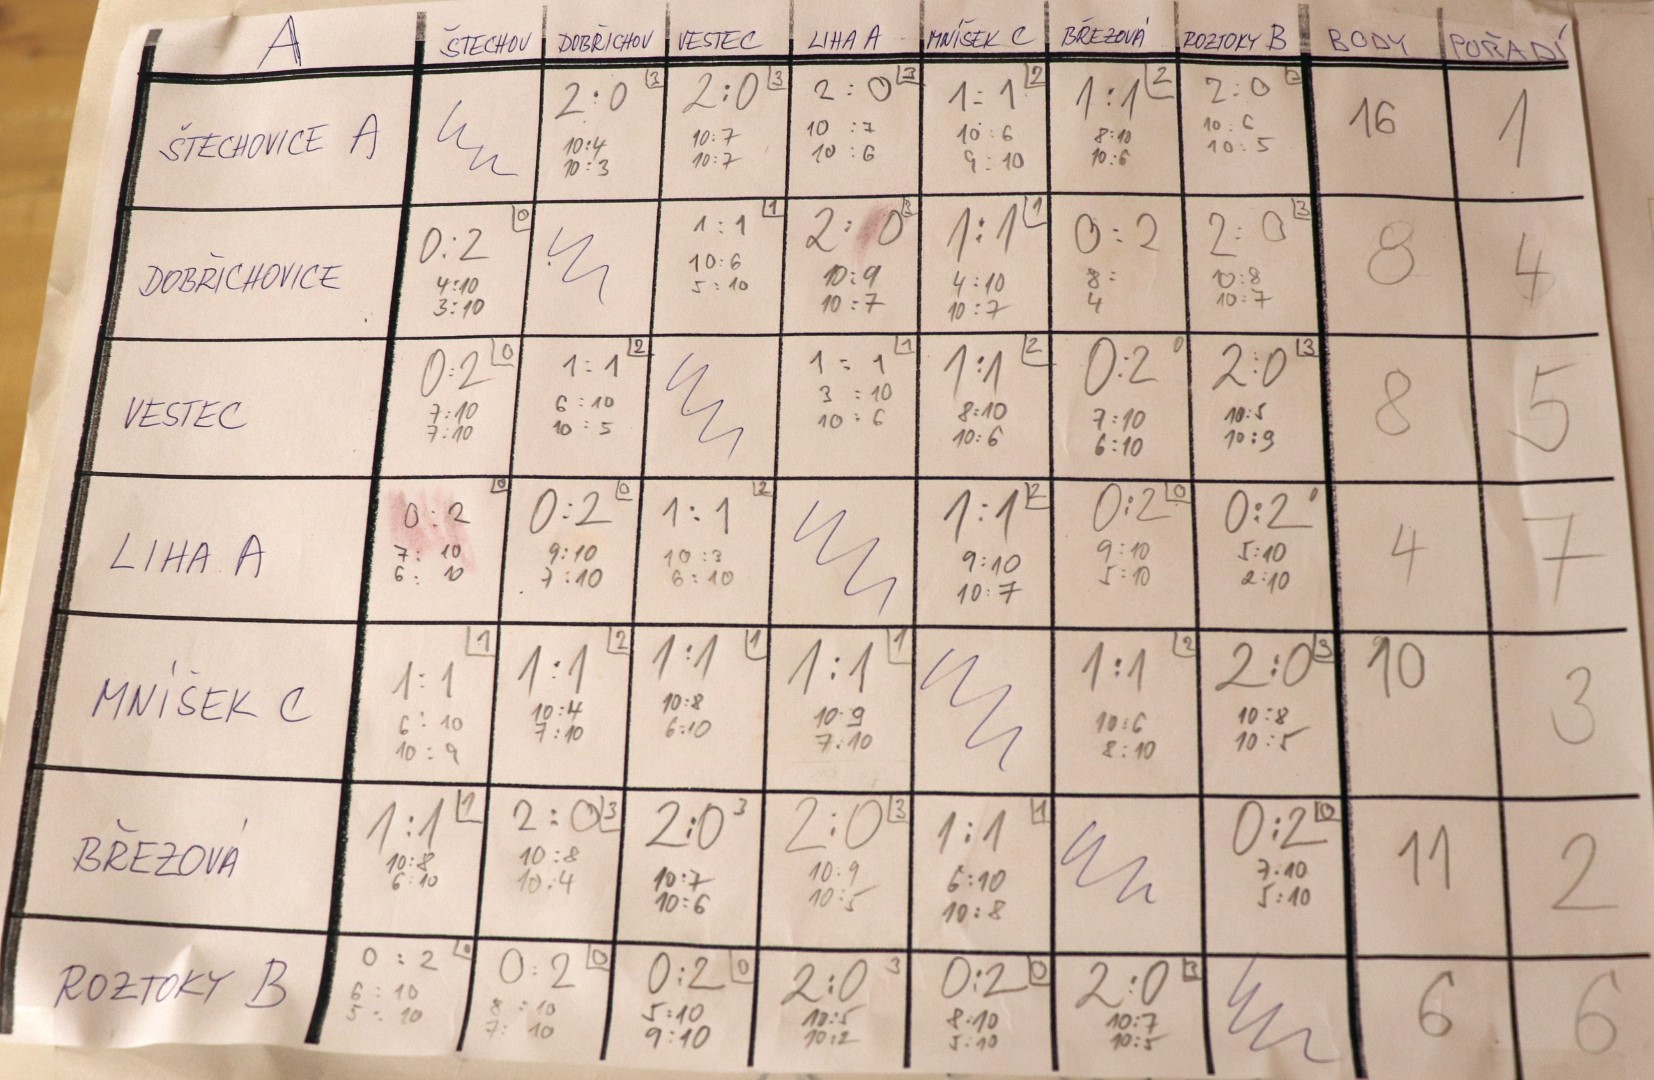 A ŠTECHOV DOBŘICHOV VESTEC LIHA A MNÍŠEK C BŘEZOVÁ ROZTOKY B BODY POŘADÍ
ŠTECHOVICE A
2:0 3
10:4
10:3
2:0 3
10:7
10:7
2:0 3
10:7
10:6
1:1 2
10:6
9:10
1:1 2
8:10
10:6
2:0
10:6
10:5
16
1
DOBŘICHOVICE
0:2 0
4:10
3:10
1:1 1
10:6
5:10
2:0 3
10:9
10:7
1:1 1
4:10
10:7
0:2
8:
4
2:0 3
10:8
10:7
8
4
VESTEC
0:2 0
7:10
7:10
1:1 2
6:10
10:5
1:1 1
3:10
10:6
1:1 2
8:10
10:6
0:2 0
7:10
6:10
2:0 3
10:5
10:9
8
5
LIHA A
0:2 0
7:10
6:10
0:2 0
9:10
7:10
1:1 2
10:3
6:10
1:1 2
9:10
10:7
0:2 0
9:10
5:10
0:2
5:10
2:10
4
7
MNÍŠEK C
1:1 1
6:10
10:9
1:1 2
10:4
7:10
1:1 1
10:8
6:10
1:1 1
10:9
7:10
1:1 2
10:6
8:10
2:0 3
10:8
10:5
10
3
BŘEZOVÁ
1:1 1
10:8
6:10
2:0 3
10:8
10:4
2:0 3
10:7
10:6
2:0 3
10:9
10:5
1:1 1
6:10
10:8
0:2 0
7:10
5:10
11
2
ROZTOKY B
0:2 0
6:10
5:10
0:2 0
8:10
7:10
0:2 0
5:10
9:10
2:0 3
10:5
10:2
0:2 0
8:10
5:10
2:0 3
10:7
10:5
6
6